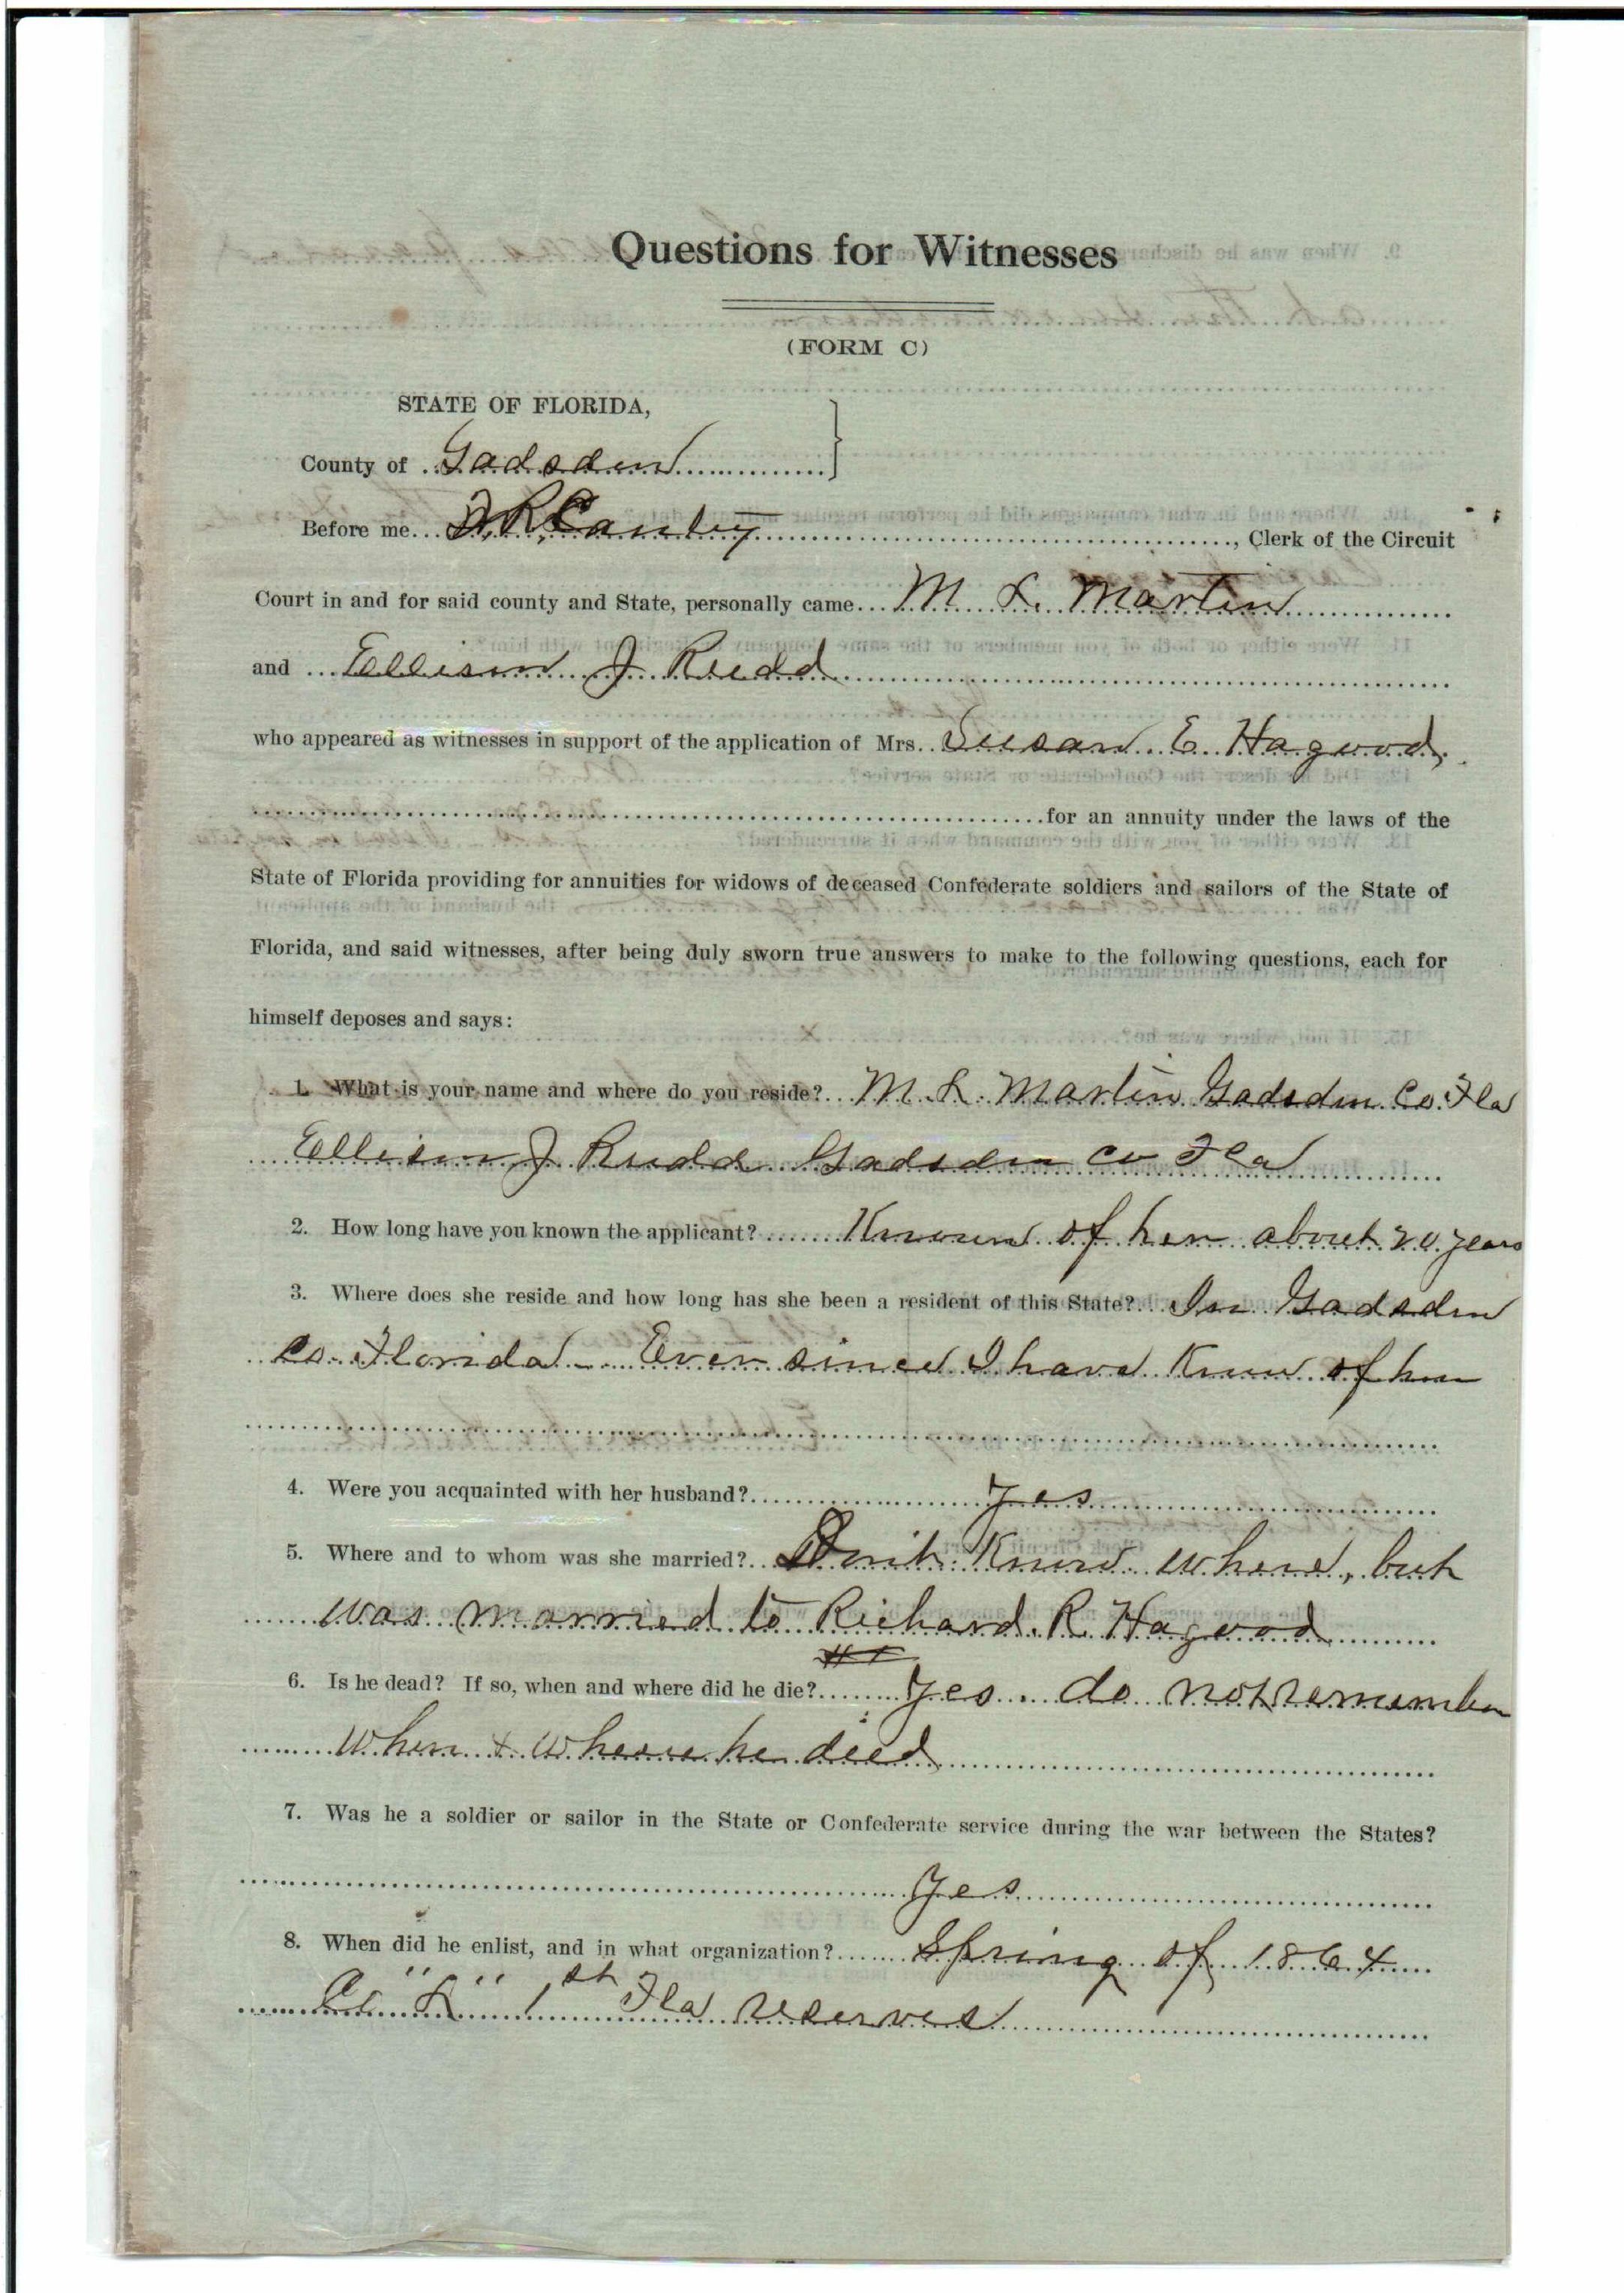 Questions for Witnesses
(FORM C)
STATE OF FLORIDA,
County of Gadsden
Before me Canley, Clerk of the Circuit
Court in and for said county and State, personally came M L. Martin
and Ellison J Rudd
who appeared as witnesses in support of the application of Mrs. Susan E Hagood,
for an annuity under the laws of the
State of Florida providing for annuities for widows of deceased Confederate soldiers and sailors of the State of
Florida, and said witnesses, after being duly sworn true answers to make to the following questions, each for
himself deposes and says:
1. What is your name and where do you reside? M. L. Martin Gadsden Co. Fla
Ellison J Rudd Gadsden Co Fla
2. How long have you known the applicant? Known of her about 20 years
3. Where does she reside and how long has she been a resident of this State? In Gadsden
Co. Florida - Ever since I have Know of her
4. Were you acquainted with her husband? yes
5. Where and to whom was she married? Dont Know where, but
was married to Richard R Hagood
6. Is he dead? If so, when and where did he die? yes. do not remember
when & where he died
7. Was he a soldier or sailor in the State or Confederate service during the war between the States?
Yes
8. When did he enlist, and in what organization? Spring of 1864
Co "K" 1st Fla reserves